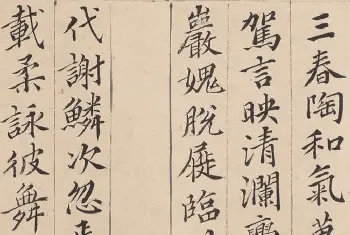 三春陶和氣萬
駕言映清瀾亹
巖愧脫屣臨
代謝鱗次忽焉
載柔詠彼舞